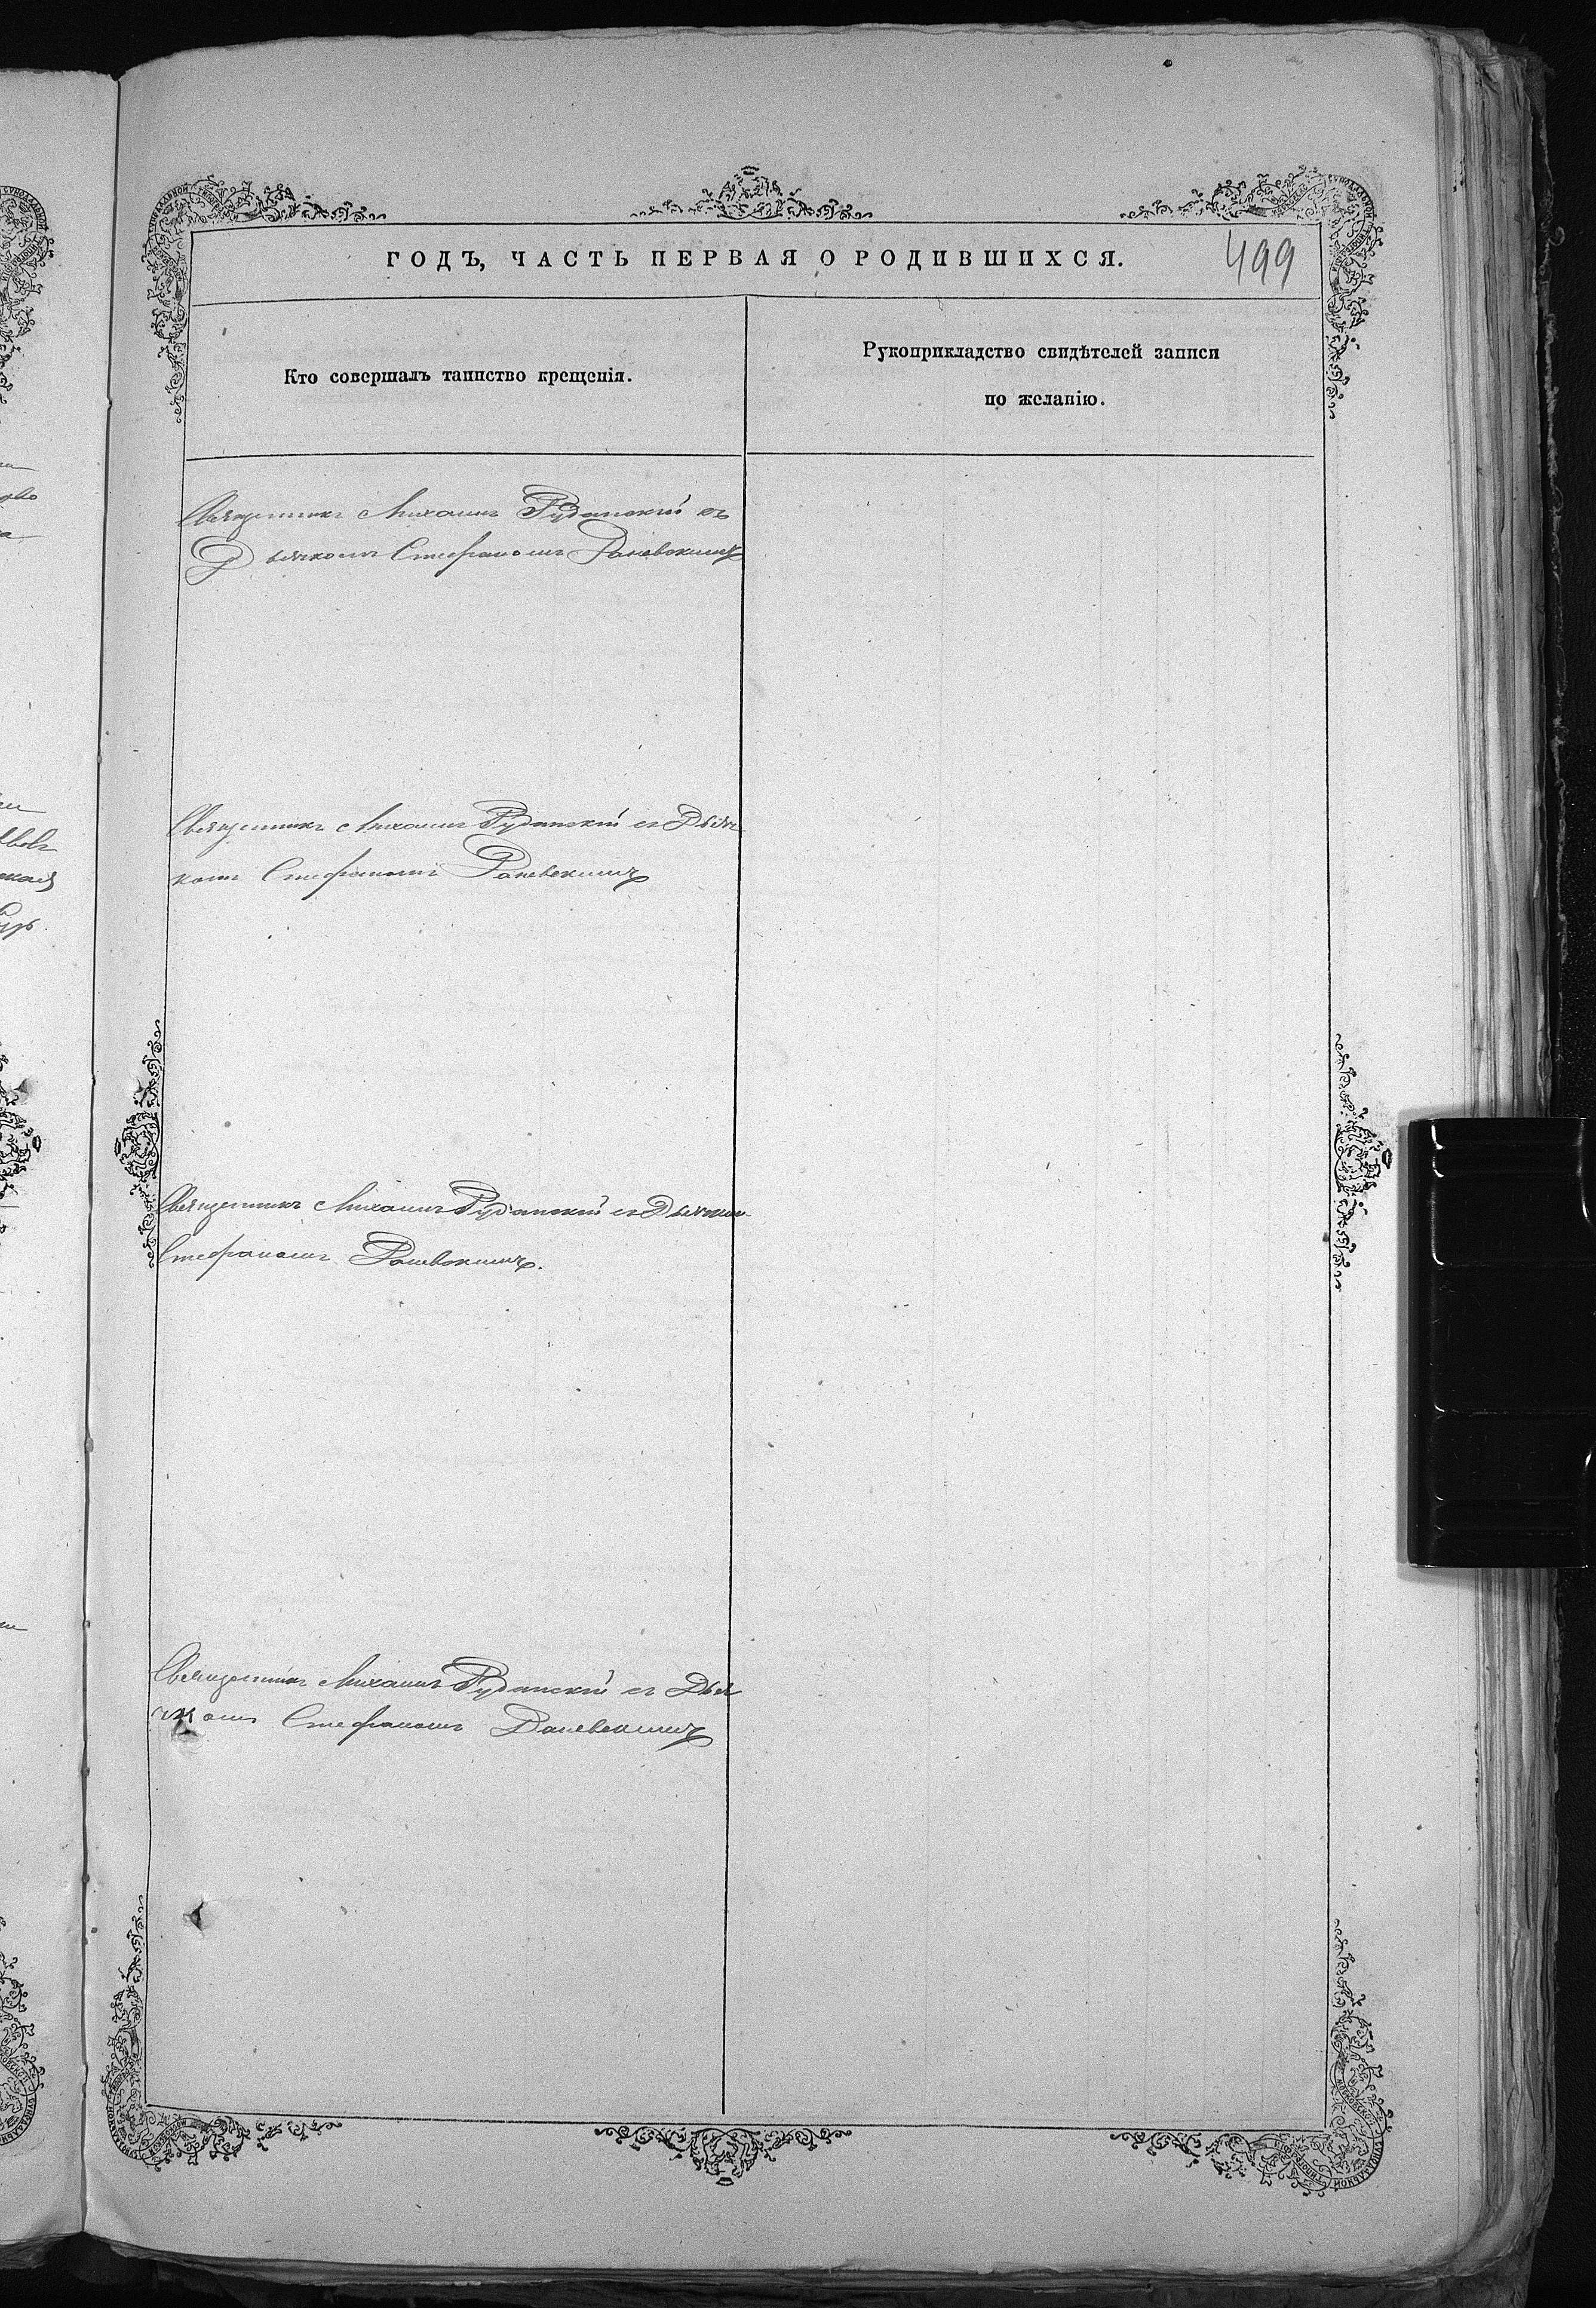 ГОДЪ, ЧАСТЬ ПЕРВАЯ О РОДИВШИХСЯ.
499
Кто совершалъ таинство крещенія.
Рукоприкладство свидѣтелей записи
по желанію.
Священникъ Михаилъ Руданскій съ
Дьячкомъ Стефаномъ Раневскимъ
Священникъ Михаилъ Руданскій съ Дьяч
комъ Стефаномъ Раневскимъ
Священникъ Михаилъ Руданскій съ Дьячком
Стефаномъ Раневскимъ.
Священникъ Михаилъ Руданскій съ Дья
чкомъ Стефаномъ